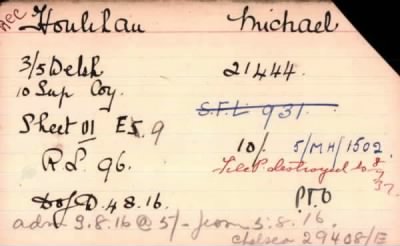 REC Houlihan Michael
3/5 Welsh 21444.
10 Sup Coy. S.F.L. 931.
Sheet 01 E5.9
10/. 5/MH/1502.
R.S. 96. File P. destroyed 8/7/37.
D of D. 4.8.16. PTO
adm 9.8.16 @ 5/- from 5.8.16.
Chelsea 29408/E